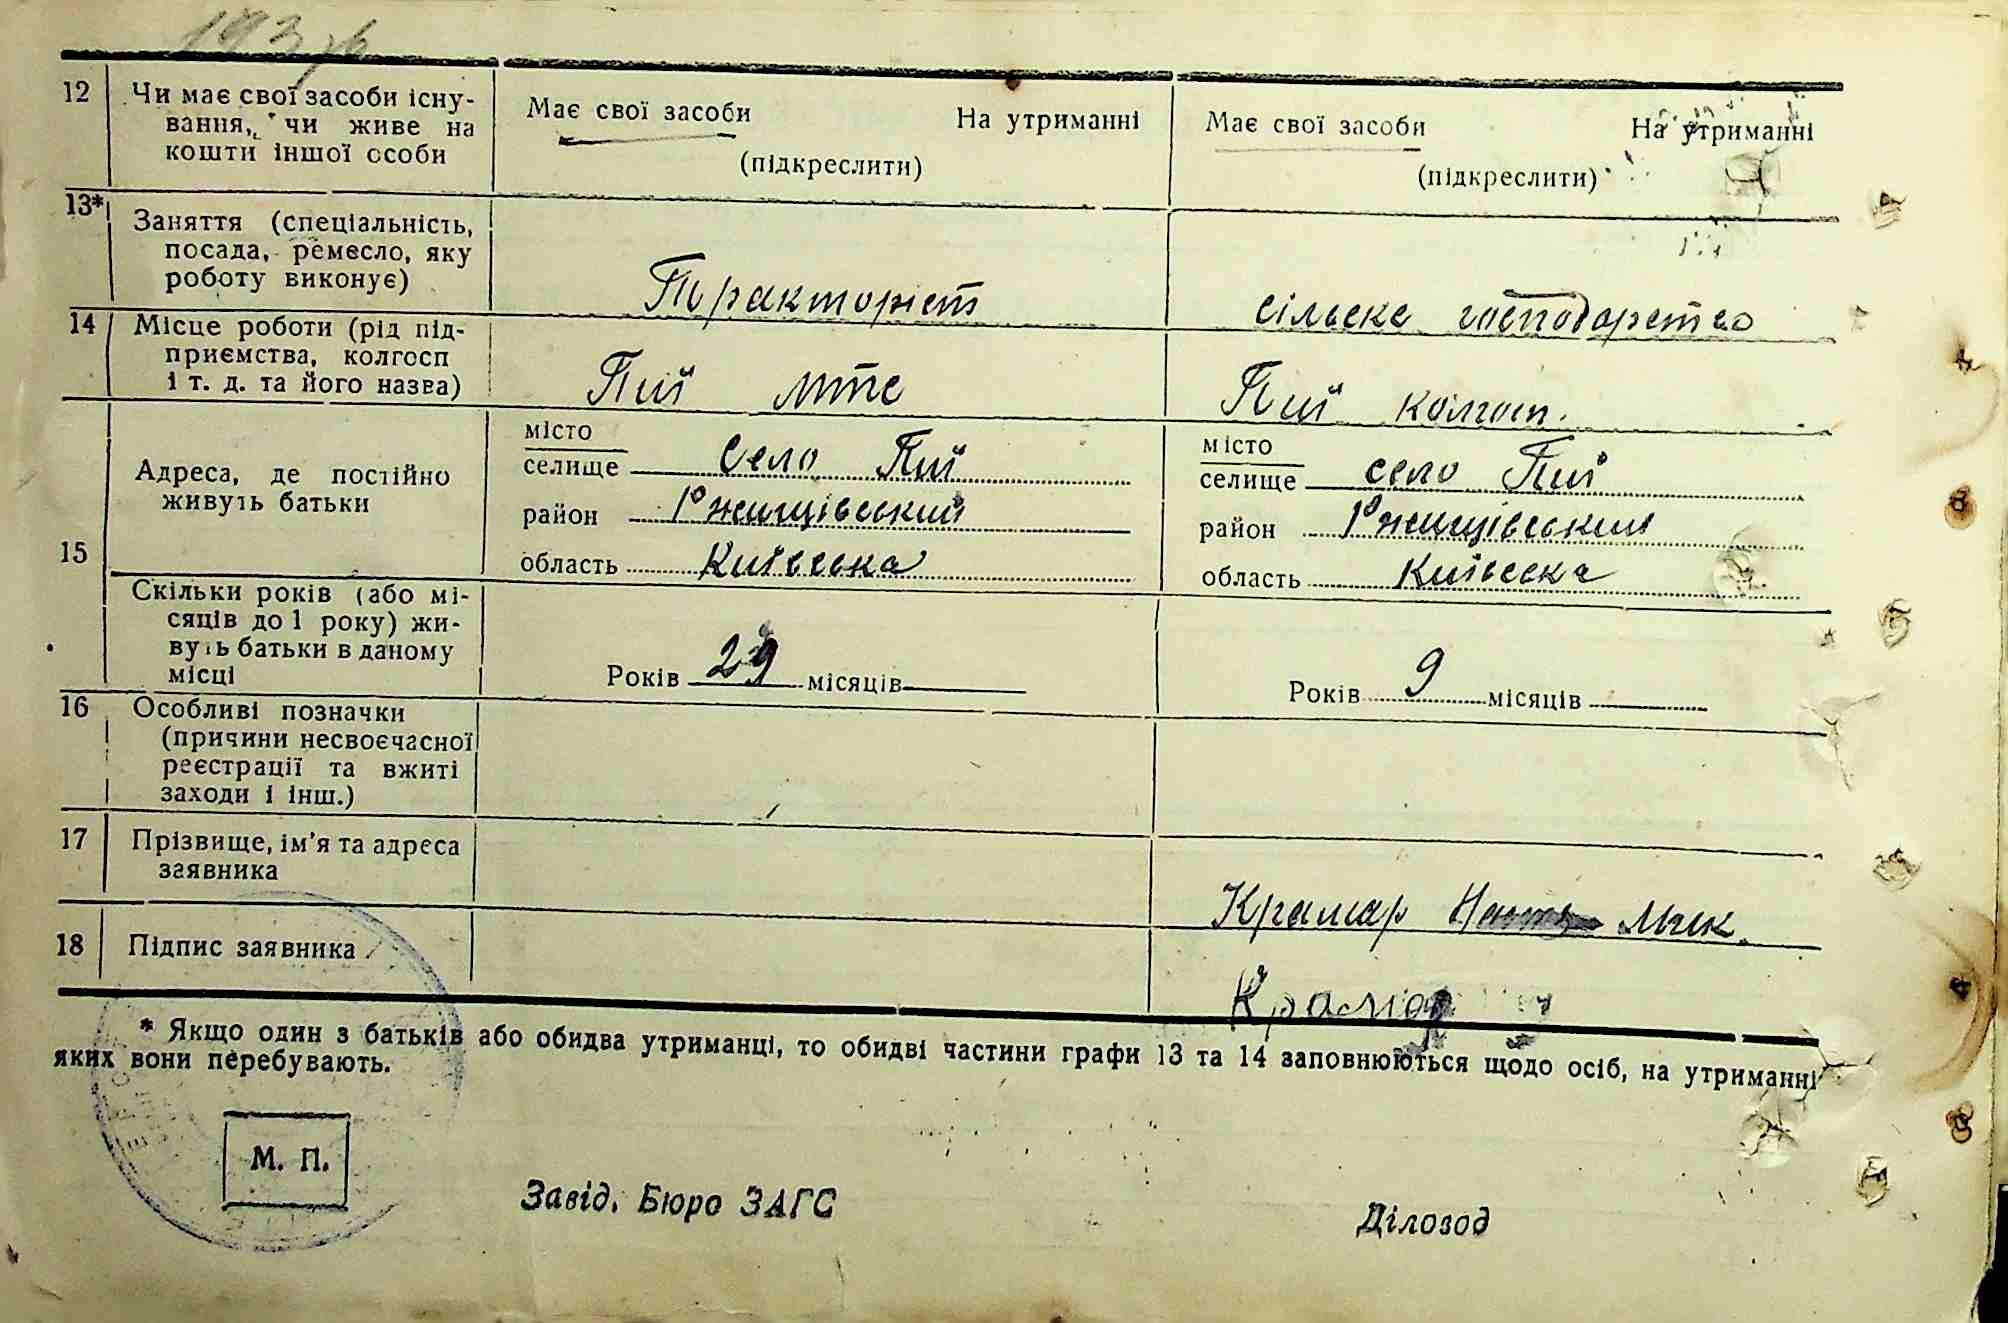 12 Чи має свої засоби існу-
вання, чи живе на
кошти іншої особи
Має свої засоби На утриманні
(підкреслити)
Має свої засоби На утриманні
(підкреслити)
13* Заняття (спеціальність,
посада, ремесло, яку
роботу виконує)
Тракторист
сільске господарство
14 Місце роботи (рід під-
приємства, колгосп
і т. д. та його назва)
Пиї мтс
Пиї колгосп.
15 Адреса, де постійно
живуть батьки
місто
селище село Пиї
район Ржищівський
область Київська
місто
селище село Пиї
район Ржищівський
область Київська
Скільки років (або мі-
сяців до 1 року) жи-
вуть батьки в даному
місці
Років 29 місяців
Років 9 місяців
16 Особливі позначки
(причини несвоєчасної
реєстрації та вжиті
заходи і інш.)
17 Прізвище, ім'я та адреса
заявника
Крамар Мик.
18 Підпис заявника
Крамар
* Якщо один з батьків або обидва утриманці, то обидві частини графи 13 та 14 заповнюються щодо осіб, на утриманні
яких вони перебувають.
М. П.
Завід. Бюро ЗАГС
Діловод